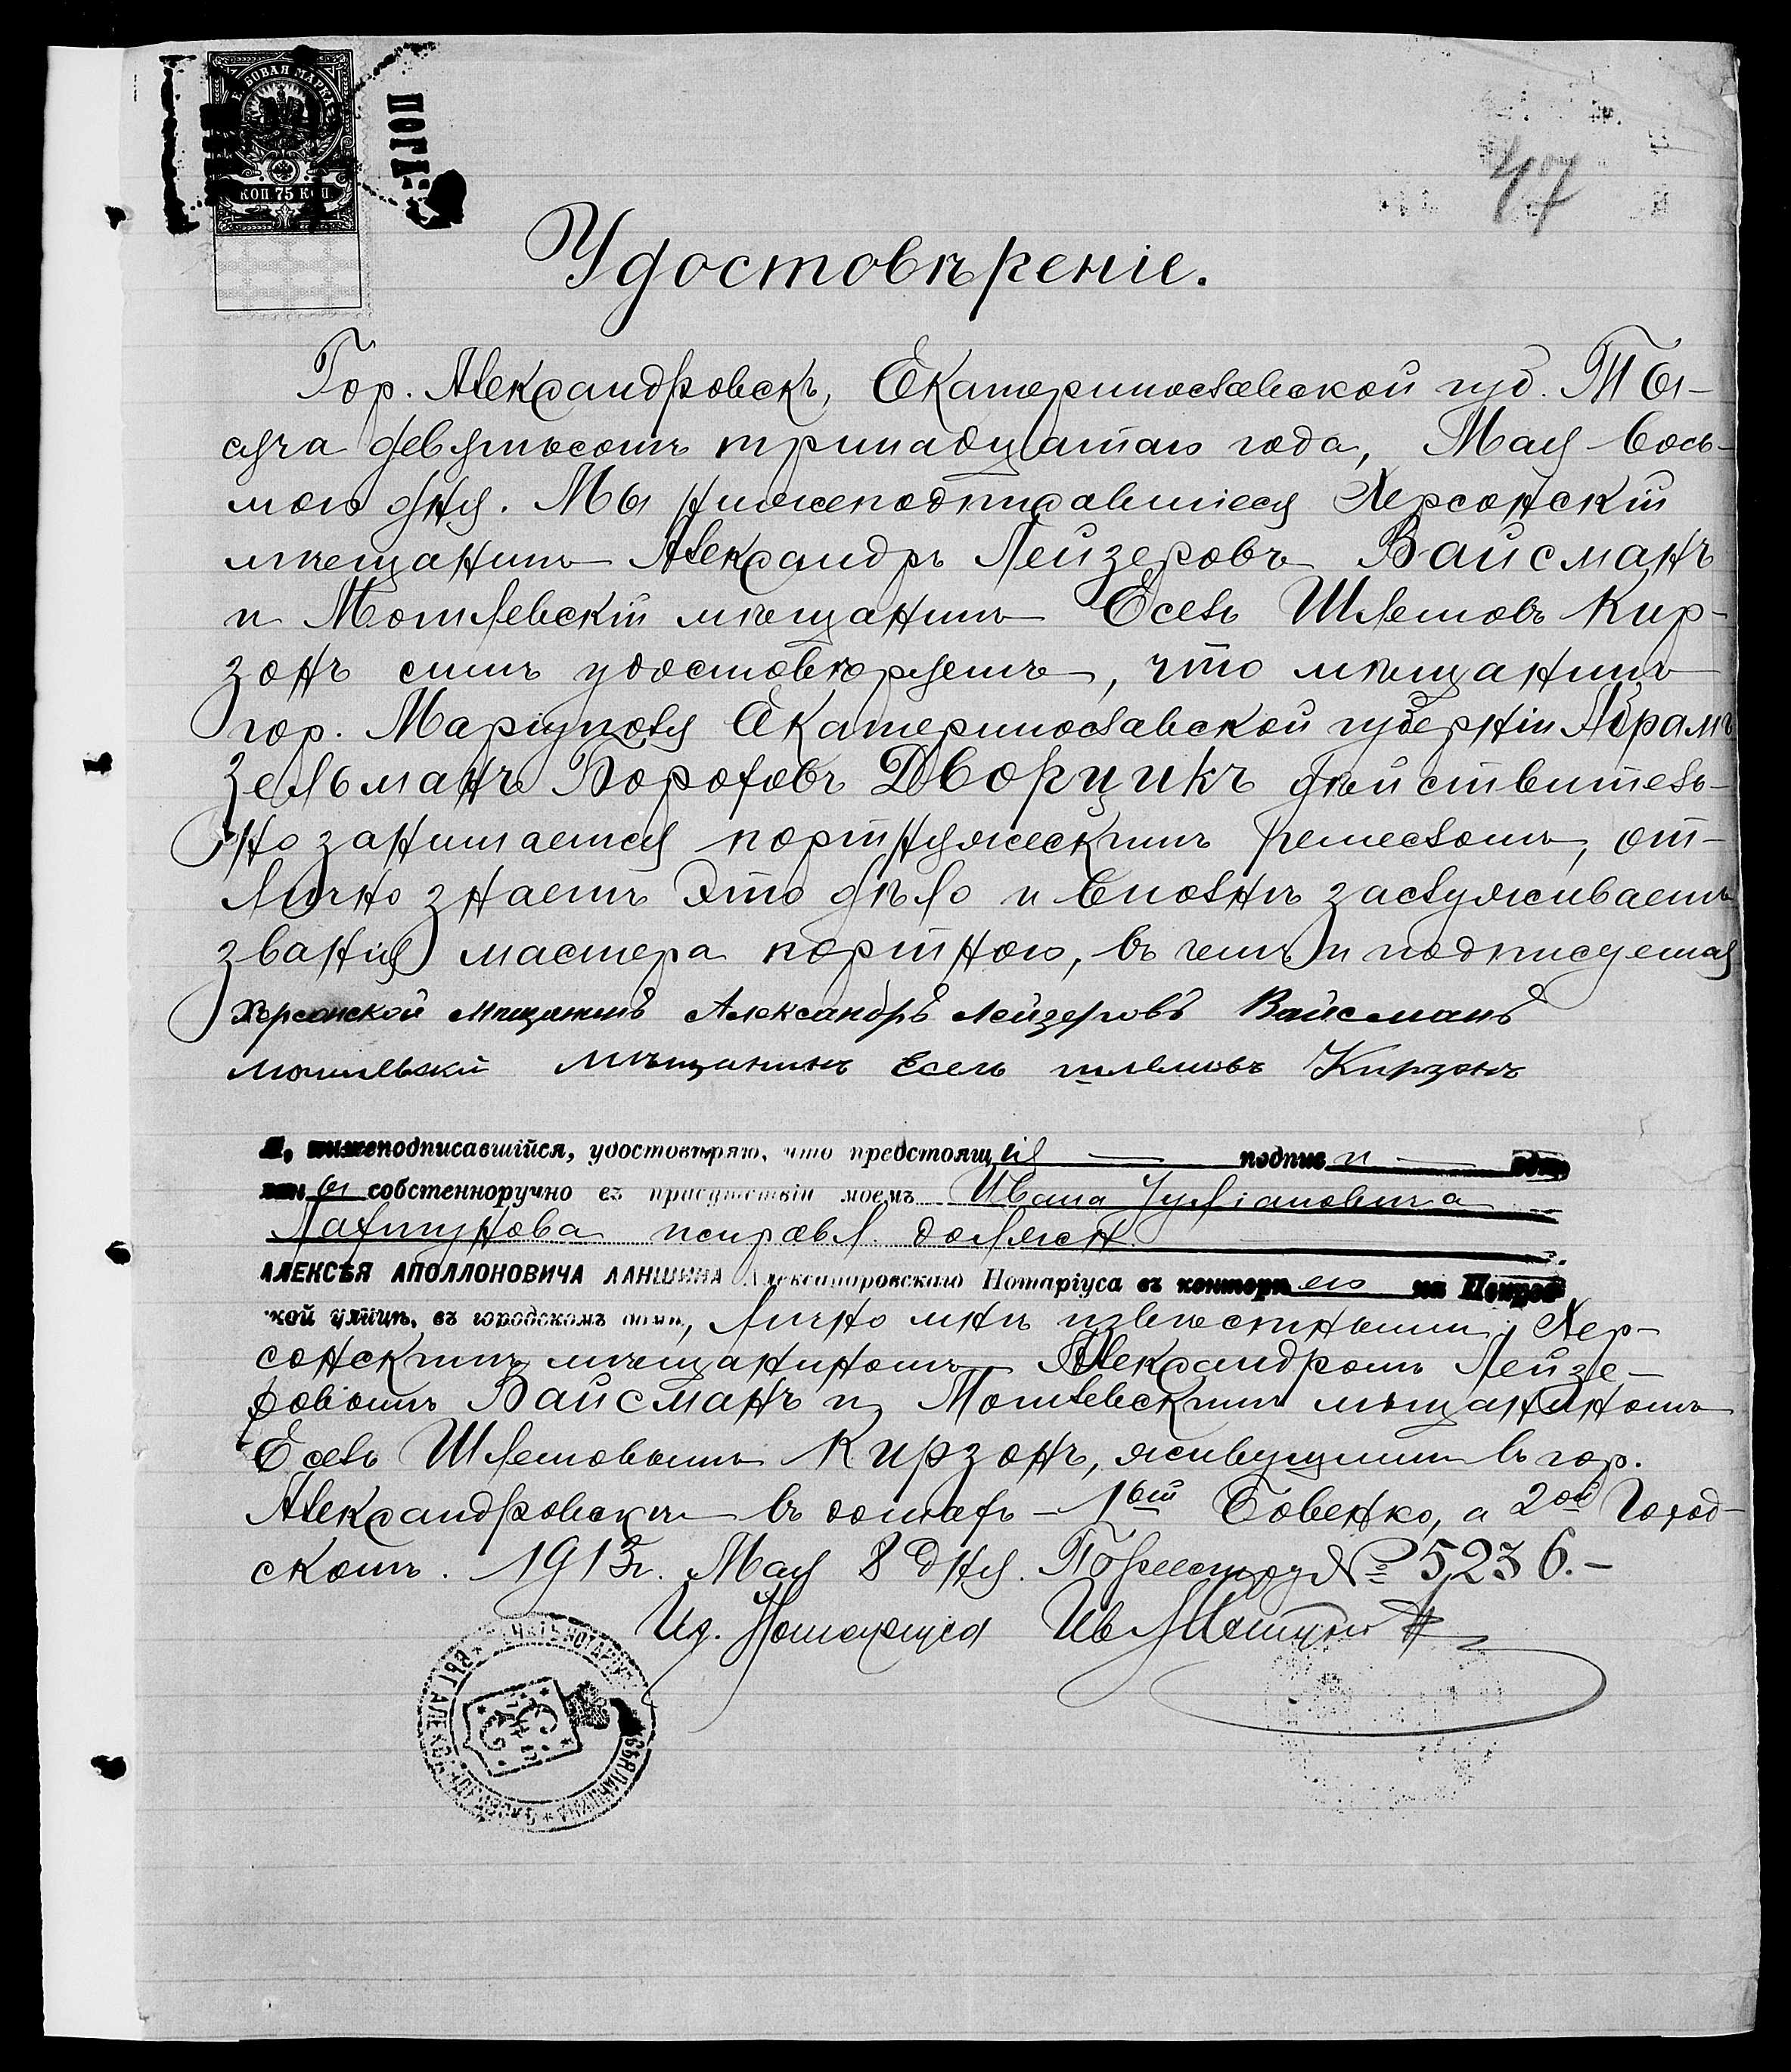 ГЕРБОВАЯ МАРКА
КОП. 75 КОП.
ПОГА
47
Удостовѣреніе.
Гор. Александровскъ, Екатеринославской губ. Ты-
сяча девятьсотъ тринадцатаго года, Мая вось-
мого дня. Мы нижеподписавшіеся Херсонскій
мѣщанинъ Александръ Лейзеровъ Вайсманъ
и Могилевскій мѣщанинъ Есель Шлемовъ Кир-
зонъ симъ удостовѣряемъ, что мѣщанинъ
гор. Маріуполя Екатеринославской губерніи Абрамъ
Зельманъ Бороховъ Дворцикъ дѣйствитель-
но занимается портняжескимъ ремесломъ, от-
лично знаетъ это дѣло и вполнѣ заслуживаетъ
званія мастера портного, въ чемъ и подписуемся
Херсонской Мищанинъ Александръ Лейзеровъ Вайсманъ
Могилевскій мѣщанинъ Есель шлемовъ Кирзонъ
Я, нижеподписавшійся, удостовѣряю, что предстоящія подписи
ны собственноручно въ присутствіи моемъ Ивана Іуліановича
исправл. должн.
АЛЕКСѢЯ АПОЛЛОНОВИЧА ЛАНШИНА Александровскаго Нотаріуса въ конторѣ его на
кой улицѣ, въ городскомъ домѣ, лично мнѣ извѣстными: Хер-
сонскимъ мѣщаниномъ Александромъ Лейзе-
ровымъ Вайсманъ и Могилевскимъ мѣщаниномъ
Есель Шлемовымъ Кирзонъ, живущими въ гор.
Александровскѣ въ домахъ 1ый Бовенко, а 2ой Город-
скомъ. 1913 г. Мая 8 дня. По реестру № 5236.-
И.д. Нотаріуса